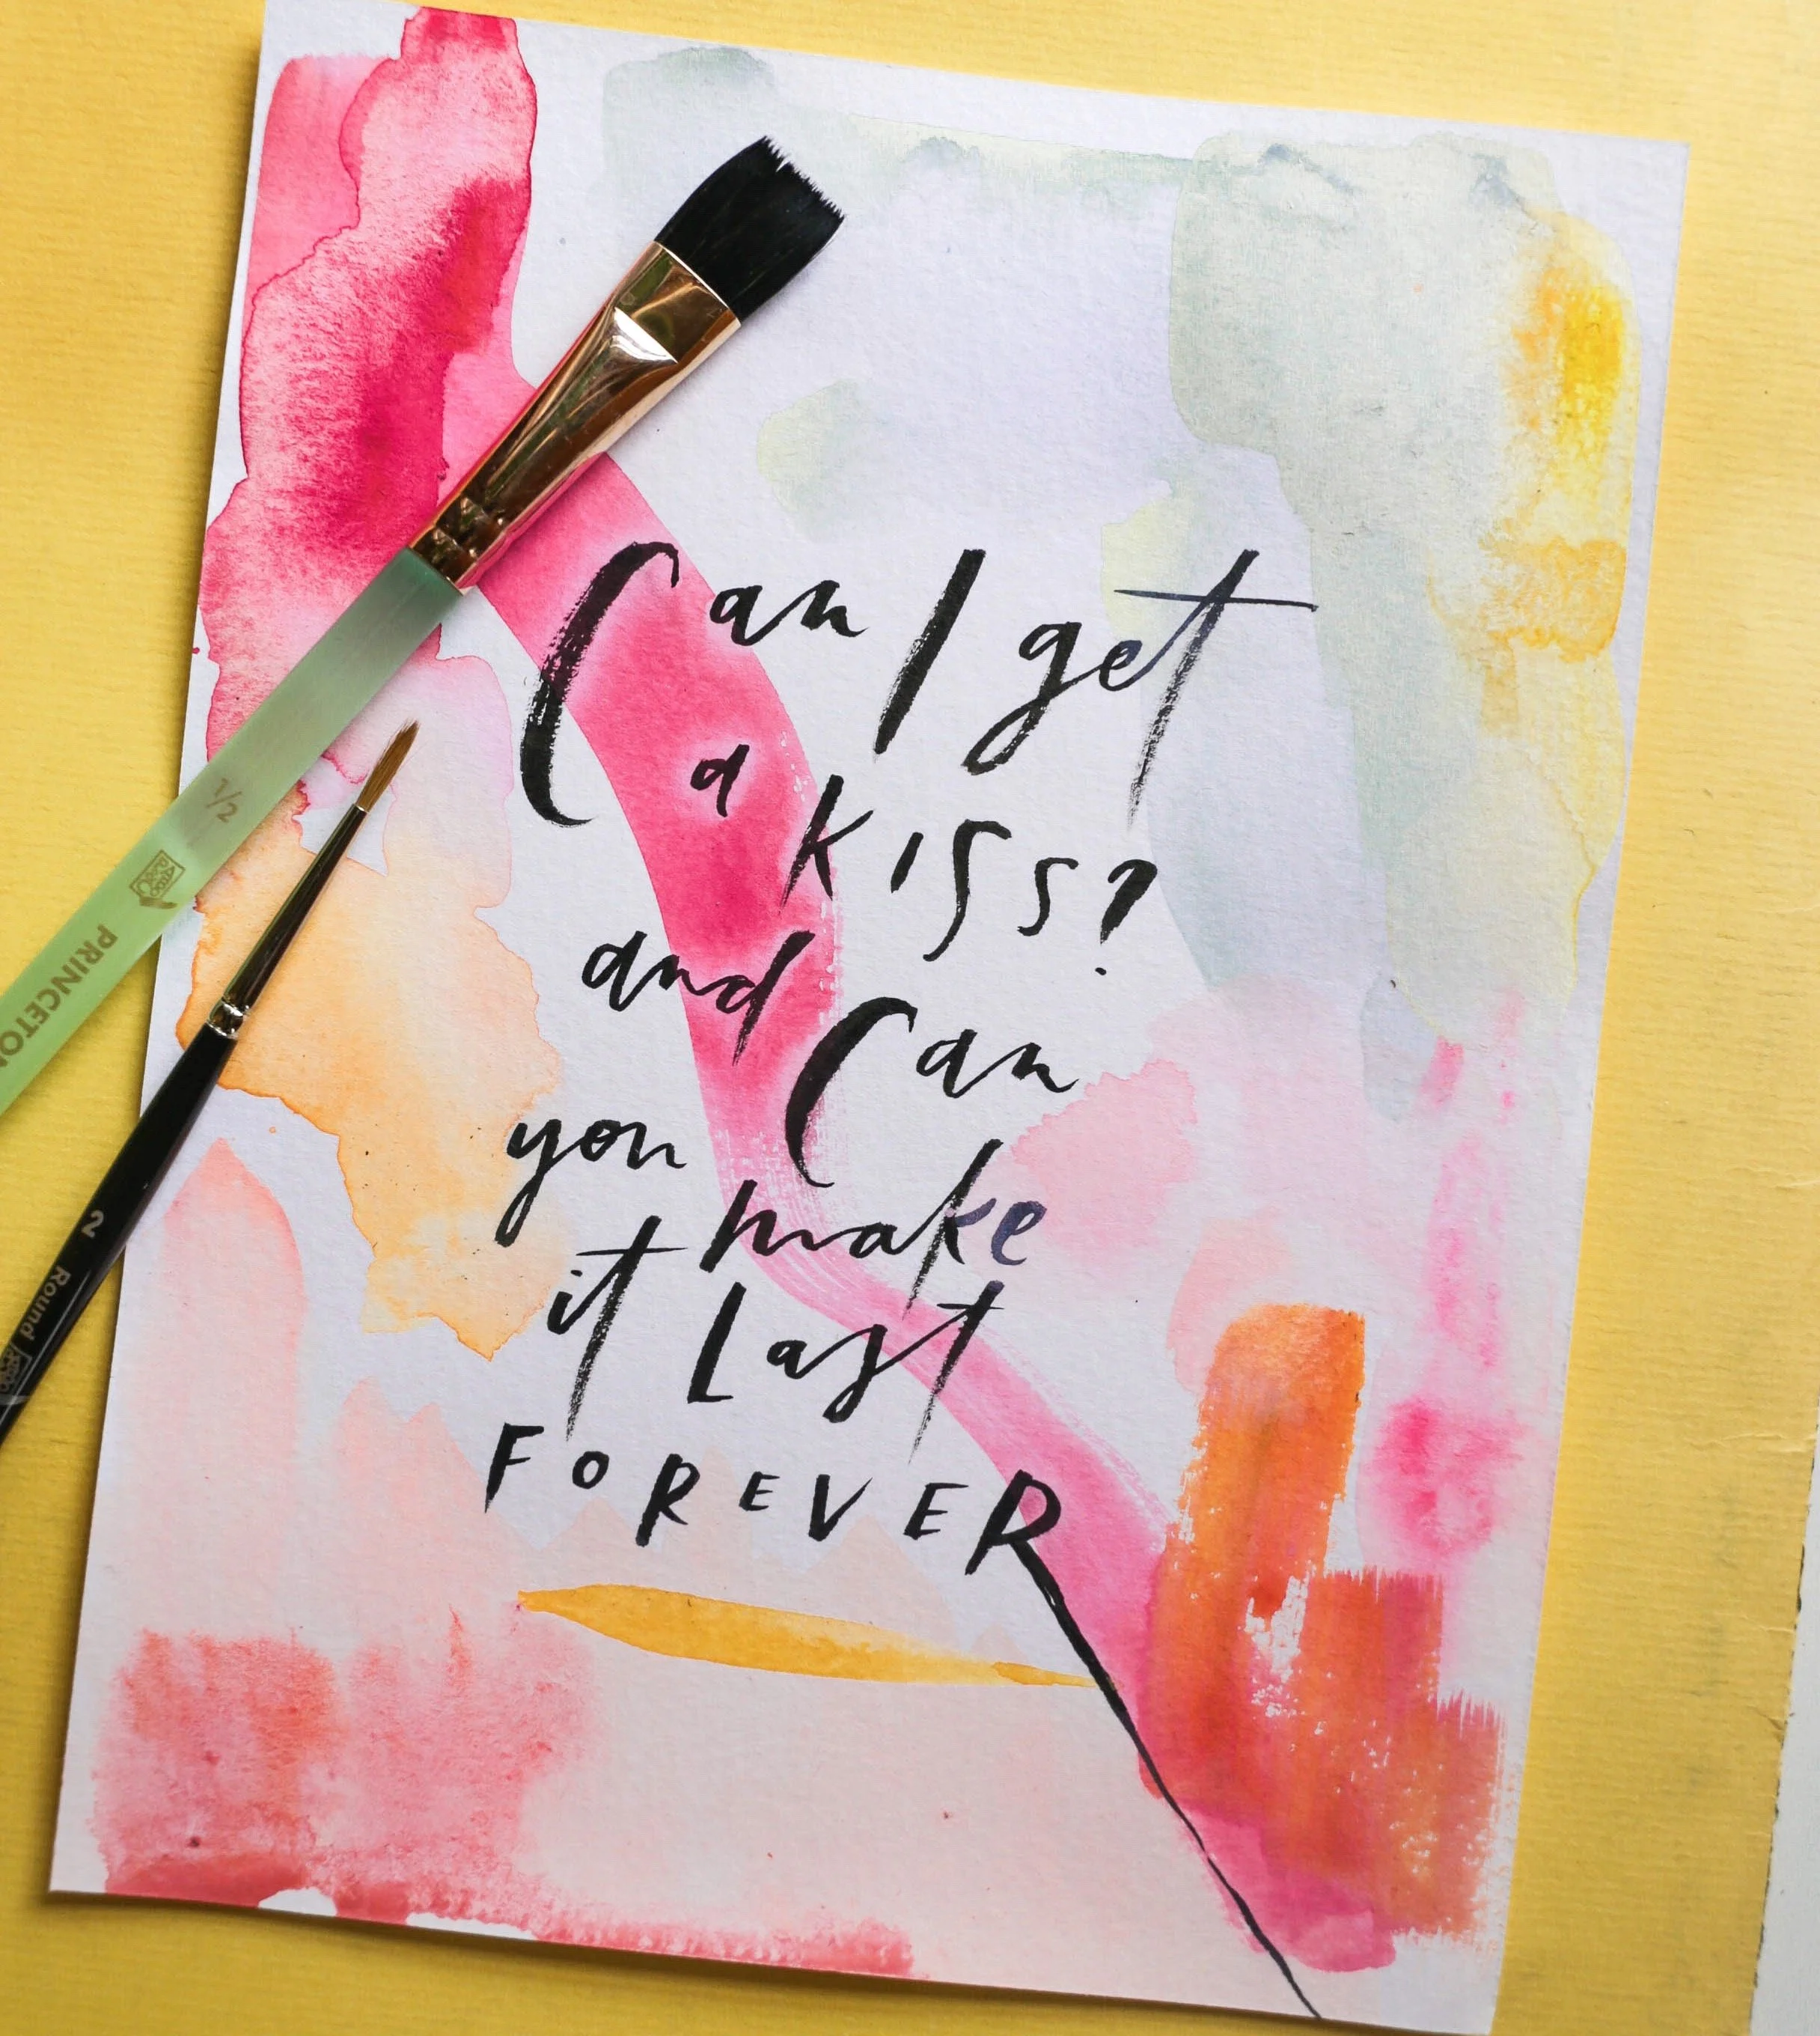 Can I get
a kiss?
and Can
you make
it Last
FOREVER
1/2
PRINCETON
2
Round